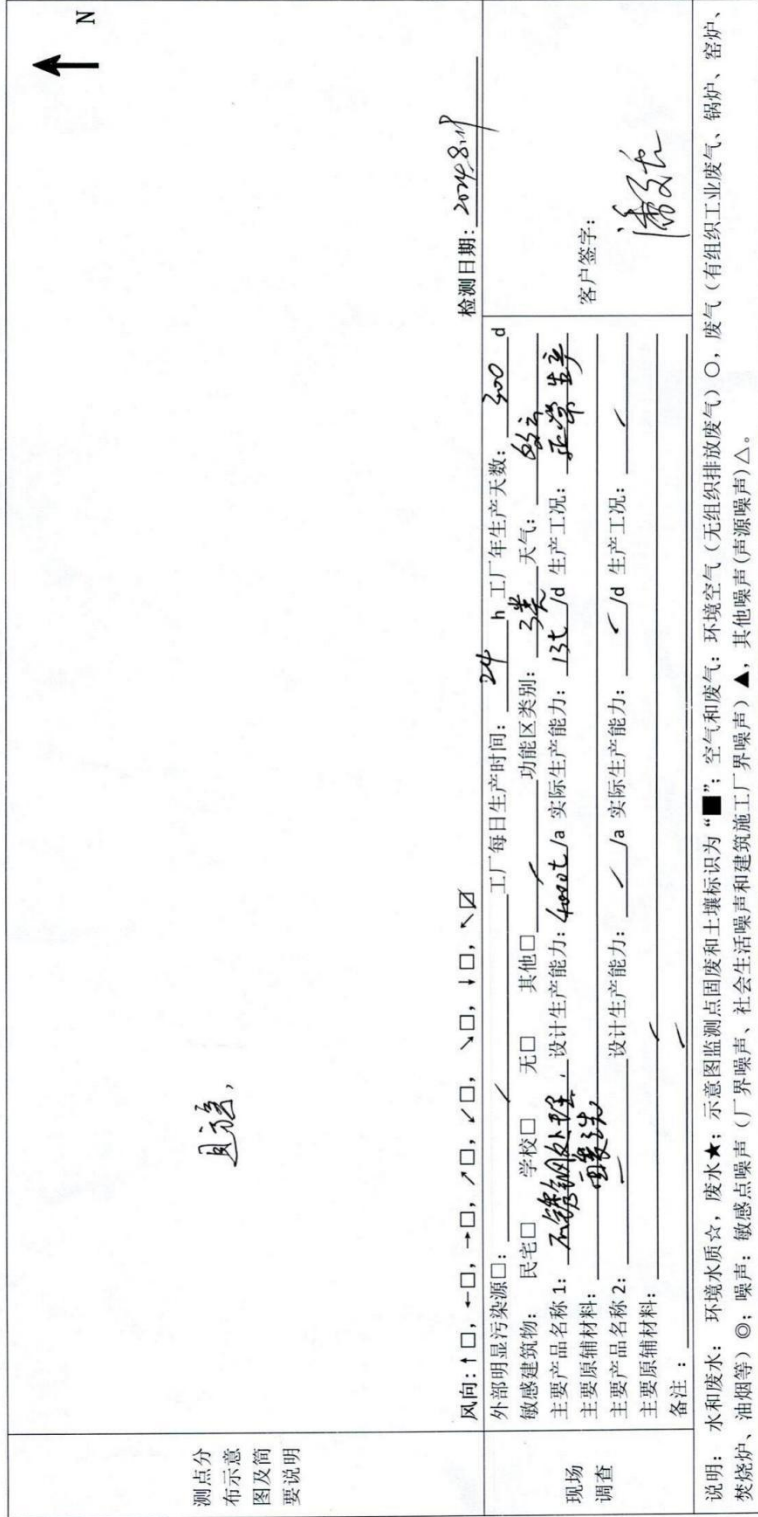 测点分
布示意
图及简
要说明
N
风向:↑□, ←□, →□, ↗□, ↙□, ↘□, ↓□, ↖☑
检测日期: 2024.8.19
现场
调查
外部明显污染源□: / 工厂每日生产时间: 24 h 工厂年生产天数: 300 d
敏感建筑物: 民宅□ 学校□ 无□ 其他□ / 功能区类别: 3类 天气:
主要产品名称 1: 不锈钢处理 设计生产能力: 4000t /a 实际生产能力: 13t /d 生产工况: 正常生产
主要原辅材料:
主要产品名称 2: 设计生产能力: /a 实际生产能力: /d 生产工况:
主要原辅材料:
备注:
客户签字:
说明: 水和废水: 环境水质☆, 废水★; 示意图监测点固废和土壤标识为“■”; 空气和废气: 环境空气(无组织排放废气)○, 废气(有组织工业废气、锅炉、窑炉、
焚烧炉、油烟等)◎; 噪声: 敏感点噪声(厂界噪声、社会生活噪声和建筑施工厂界噪声)▲, 其他噪声(声源噪声)△。